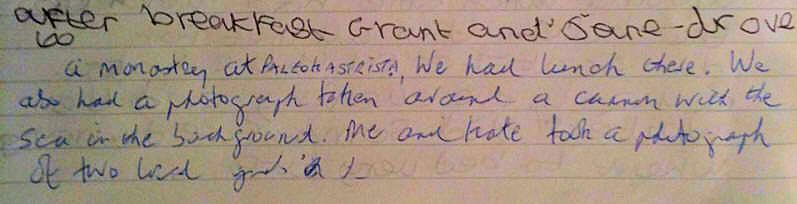 after breakfast Grant and Jane drove
to
a monastery at PALEOKASTRISTA, We had lunch there. We
also had a photograph taken around a cannon with the
sea in the background. Me and Kate took a photograph
of two